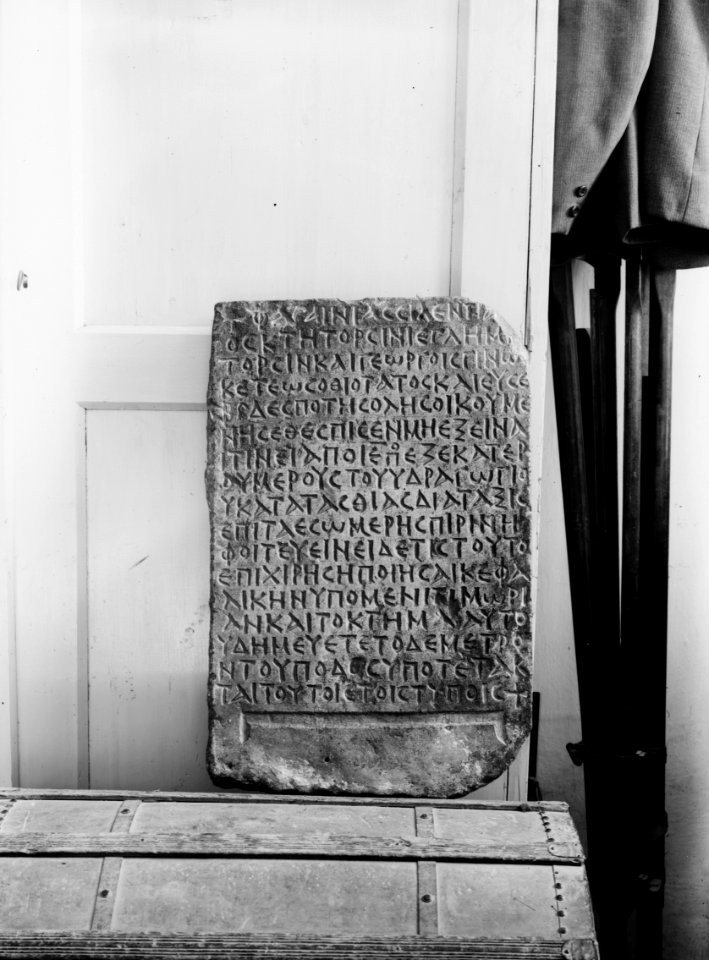 ΟΣΚΤΗΤΟΡΣΙΝΙΕΓΛΗΜ
ΤΟΡΣΙΝΚΑΙΓΕΩΡΓΟΙΣΓΙΝΩ
ΚΕΤΕΩΣΟΘΙΟΤΑΤΟΣΚΑΙΕΥΣΕ
ΔΕΣΠΟΤΗΣΟΛΗΣΟΙΚΟΥΜΕ
ΝΗΣΕΘΕΣΠΙΣΕΝΜΗΕΞΕΙΝΑΙ
ΤΙΝΞΙΑΠΟΙΕΠΕΞΕΚΑΤΕΡ
ΟΥΜΕΡΟΥΣΤΟΥΥΔΡΑΓΩΓΙΟ
ΥΚΑΤΑΤΑΣΘΙΑΣΔΙΑΤΑΞΙΣ
ΕΠΙΤΑΕΣΩΜΕΡΗΣΠΙΡΙΝΗΝ
ΦΟΙΤΕΥΕΙΝΕΙΔΕΤΙΣΤΟΥΤΟ
ΕΠΙΧΙΡΗΣΗΠΟΙΗΣΑΙΚΕΦΑ
ΛΙΚΗΝΥΠΟΜΕΝΙΤΙΜΩΡΙ
ΑΝΚΑΙΤΟΚΤΗΜΑΑΥΤΟ
ΥΔΗΜΕΥΕΤΕΤΟΔΕΜΕΤΡΟ
ΝΤΟΥΠΟΔΟΣΥΠΟΤΕΤΑΚ
ΤΑΙΤΟΥΤΟΙΕΤΟΙΣΤΥΠΟΙΣ+